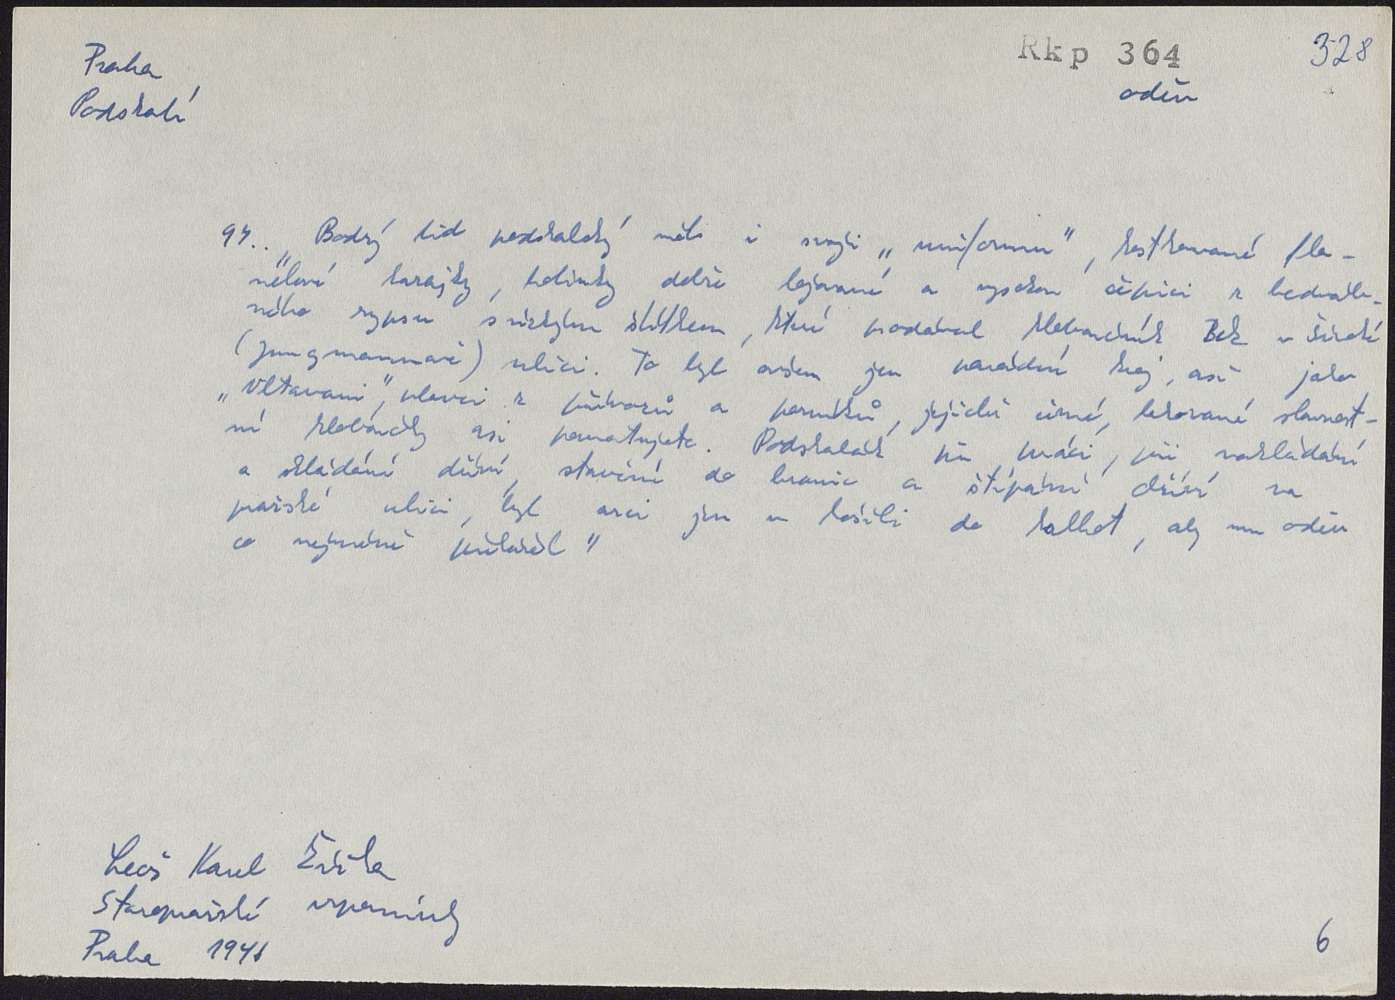 Praha
Podskalí
Rkp 364
oděv
328
94. „Bodrý lid podskalský měl i svoji „uniformu", kostkované fla-
nelové kazajky, holínky dobře lojované a vysokou čepici z hedváb-
ného rypsu s nízkým štítkem, které prodával kloboučník Bek v Široké
(Jungmannově) ulici. To byl ovšem jen parádní kroj, asi jako
„Vltavani", plavci z přívozů a parníků, jejichž černé, lakované slavnost-
ní kloboučky asi pamatujete. Podskalák při práci, při nakládání
a skládání dříví, stavění do hranic a štípání dříví na
pražské ulici, byl arci jen v košili do kalhot, aby mu oděv
co nejméně překážel"
Leoš Karel Žižka
Staropražské vzpomínky
Praha 1941
6